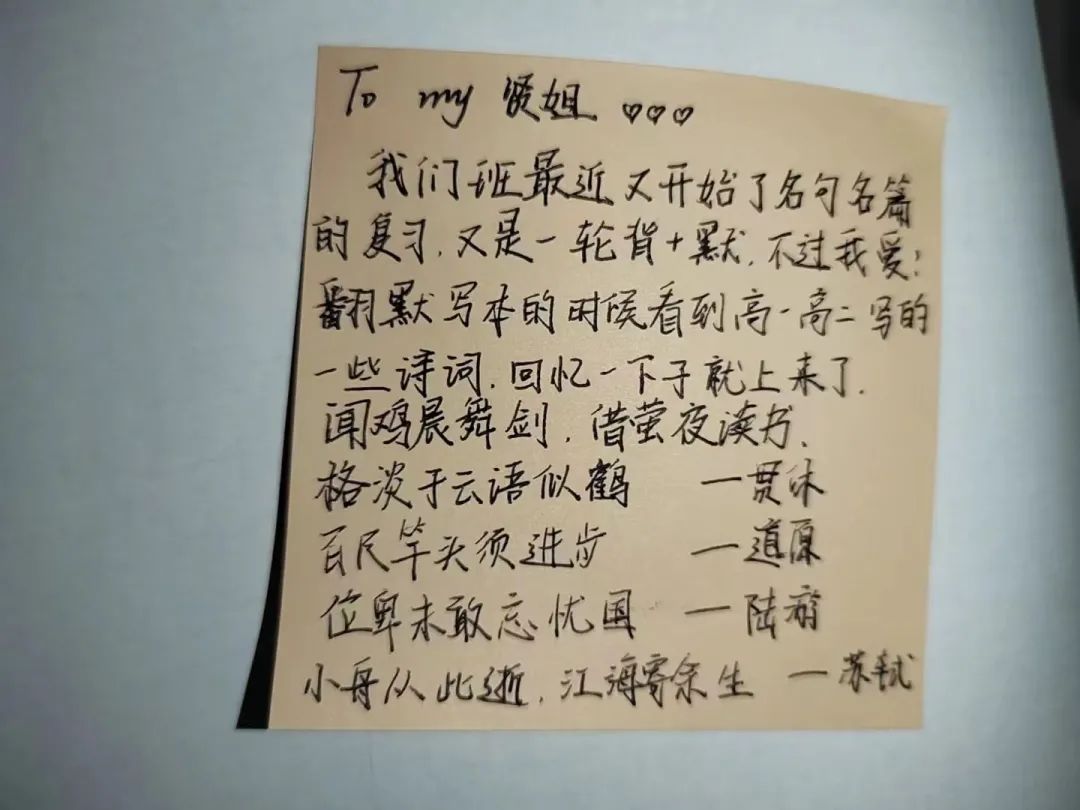 To my 贤姐 ♡♡♡
我们班最近又开始了名句名篇
的复习,又是一轮背+默,不过我爱!
翻默写本的时候看到高一高二写的
一些诗词,回忆一下子就上来了.
闻鸡晨舞剑,借萤夜读书、
格淡于云语似鹤 —贯休
百尺竿头须进步 —道原
位卑未敢忘忧国 —陆游
小舟从此逝,江海寄余生 —苏轼